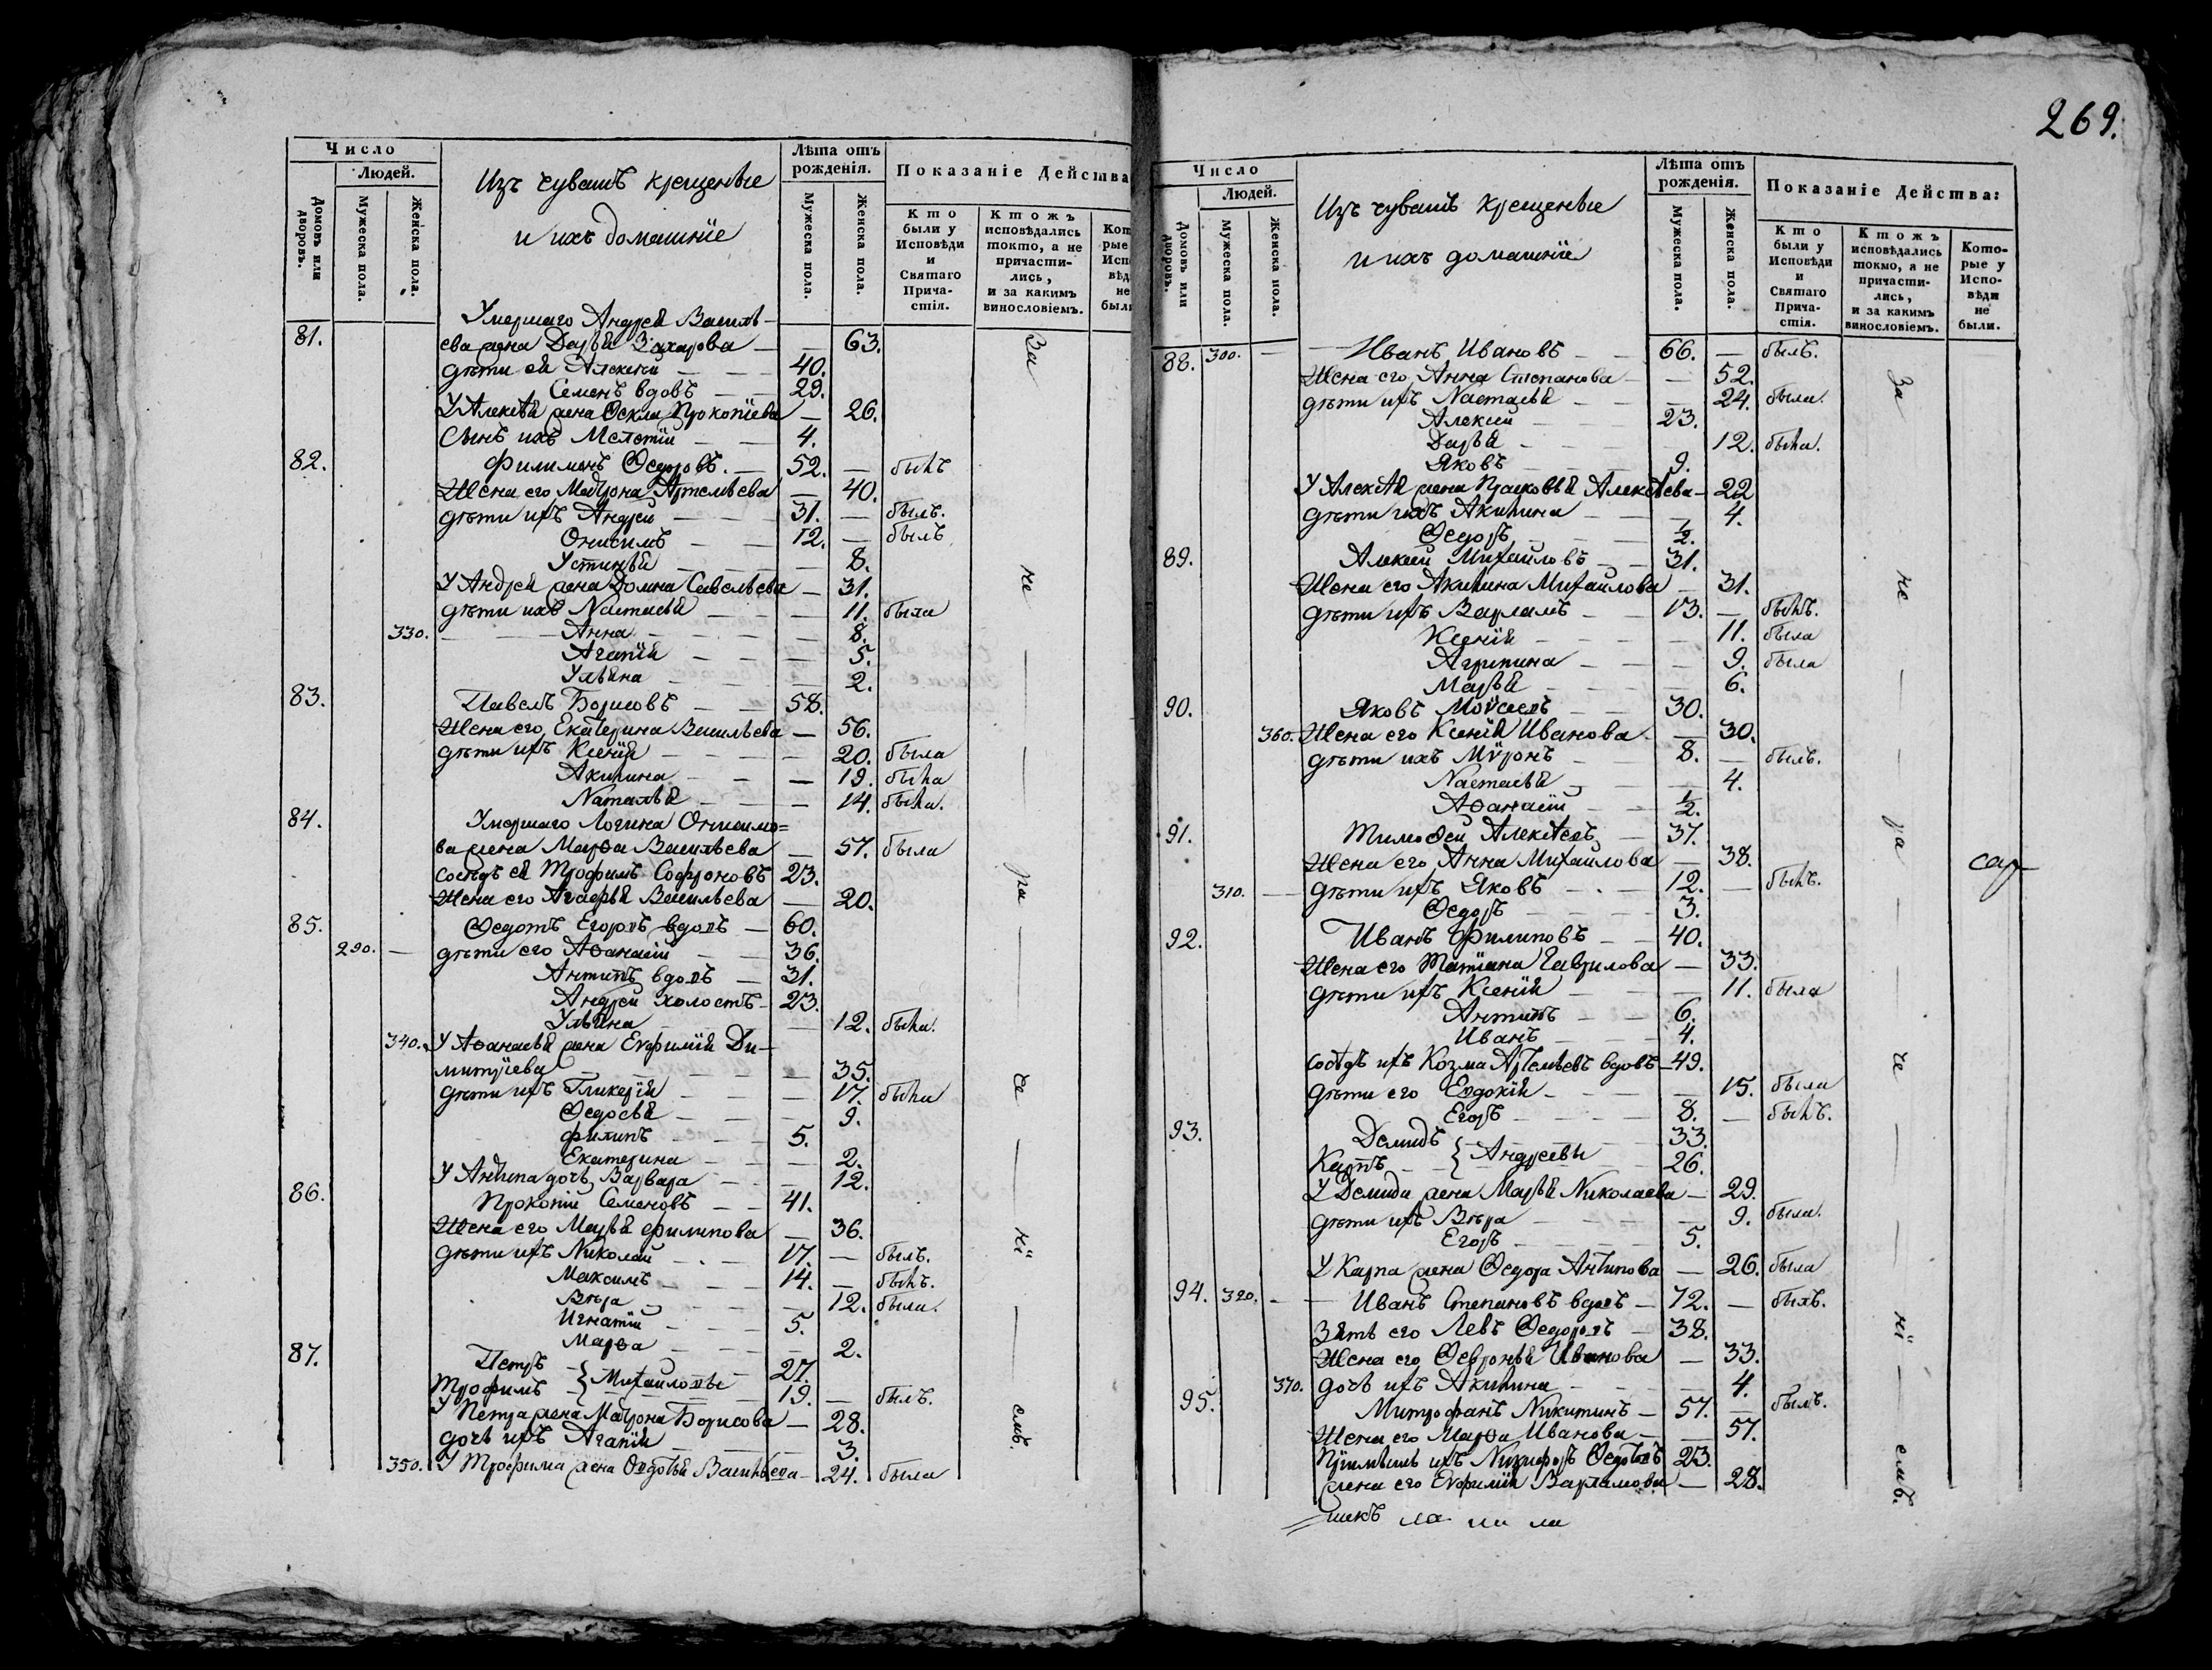 Число
Людей.
Домовъ или дворовъ.
Мужеска пола.
Женска пола.
Изъ чувашъ крещеные
и ихъ домашнїе
Лѣта отъ рожденія.
Мужеска пола.
Женска пола.
Показаніе Действа
Кто были у Исповѣди и Святаго Причастія.
Ктожъ исповѣдались токто, а не причастились, и за какимъ винословіемъ.
Умершаго Андрея Василь-
81. ева жена Дарья Захарова — — 63.
дѣти ея Алексѣй — — 40.
Семенъ вдовъ — — 29.
У Алексѣя жена Ѳекла Прокопїева — 26.
Сынъ ихъ Мелетїй — — 4.
82. Филимонъ Ѳедоровъ. — 52. — былъ
Жена его Матрона Артемьева — 40.
дѣти ихъ Андрей — — 31. — былъ.
Онисимъ — — 12. — былъ
Устинья — — — 8.
У Андрея жена Домна Савельева — 31.
дѣти ихъ Настасья — — — 11. была
330. — Анна — — — 8.
Агапїя — — — 5.
Ульяна — — 2.
83. Павелъ Борисовъ — — 58.
Жена его Екатерина Васильева — 56.
дѣти ихъ Ксенїя — — — 20. была
Акилина — — — 19. была
Наталья — — — 14. была.
84. Умершаго Логина Онисимо=
ва жена Марѳа Васильева — 57. была
сосѣдъ ея Трофимъ Софроновъ 23.
Жена его Агафья Васильева — 20.
85. Ѳедотъ Егоровъ вдовъ — 60.
290. — дѣти его Аѳанасїй — — 36.
Антипъ вдовъ — 31.
Андрей холостъ — 23.
Ульяна — — 12. была.
340. У Аѳанасья жена Евфимїя Ди-
митрїева — — — — 35.
дѣти ихъ Гликерїя — — — 17. была
Ѳедосья — — — 9.
Филипъ — — 5.
Екатерина — — — 2.
У Антипа дочь Варвара — — — 12.
86. Прокопїй Семеновъ — — 41.
Жена его Марья Филипова — 36.
дѣти ихъ Николай — . — 17. — былъ.
Максимъ — — 14. — былъ.
Вѣра — — — 12. была.
Игнатїй — — 5.
Марѳа — — — 2.
87. Петръ — } Михайловы — 27.
Трофимъ — 19. — былъ.
У Петра жена Матрона Борисова — 28.
дочь ихъ Агапїя — — — 3.
350. У Трофима жена Овдотья Васильева — 24. была
За не — ра — че — нї — емъ.
269.
Число
Людей.
Домовъ или дворовъ.
Мужеска пола.
Женска пола.
Изъ чувашъ крещеные
и ихъ домашнїе
Лѣта отъ рожденія.
Мужеска пола.
Женска пола.
Показаніе Действа:
Кто были у Исповѣди и Святаго Причастія.
Ктожъ исповѣдались токмо, а не причастились, и за какимъ винословіемъ.
Которые у Исповѣди не были.
88. 300. — Иванъ Ивановъ — — 66. — былъ.
Жена его Анна Степанова — — 52.
дѣти ихъ Настасья — — — 24. была.
Алексѣй — — 23.
Дарья — — — 12. была.
Яковъ — — 9.
У Алексѣя жена Прасковья Алексѣева — 22
дѣти ихъ Акилина — — — 4.
Ѳедоръ — — 1/2.
89. Алексѣй Михайловъ — — 31.
Жена его Акилина Михайлова — 31.
дѣти ихъ Варламъ — — 13. — былъ.
Ксенїя — — — 11. была
Агрипина — — — 9. была
Марья — — — 6.
90. Яковъ Моѵсеевъ — — 30.
360. Жена его Ксенїя Иванова. — 30.
дѣти ихъ Мѵронъ — 8. — былъ.
Настасья — — — 4.
Аѳанасїй — — 1/2.
91. Тимоѳей Алексѣевъ — 37.
Жена его Анна Михайлова — 38.
310. — дѣти ихъ Яковъ — . — 12. — былъ.
Ѳедоръ — — 3.
92. Иванъ Филиповъ — — 40.
Жена его Татїана Гаврилова — 33.
дѣти ихъ Ксенїя — — — 11. была
Антипъ — — 6.
Иванъ — — 4.
сосѣдъ ихъ Козма Артемьевъ вдовъ — 49.
дѣти его Евдокїя — — — 15. была
Егоръ — — 8. — былъ.
93. Демидъ } Андреевы — 33.
Карпъ — 26.
У Демида жена Марья Николаева — 29.
дѣти ихъ Вѣра — — — 9. была.
Егоръ — — 5.
У Карпа жена Ѳедора Антипова — 26. была
94. 320. — Иванъ Степановъ вдовъ — 72. — былъ.
Зять его Левъ Ѳедоровъ — 38.
Жена его Ѳевронья Иванова — 33.
370. дочь ихъ Акилина — — — 4.
95. Митрофанъ Никитинъ — 57. — былъ.
Жена его Марѳа Иванова — — 57.
Прїимышъ ихъ Никифоръ Ѳедотовъ 23.
жена его Евфимїя Варламова — 28.
За не — ра — че — нї — емъ.